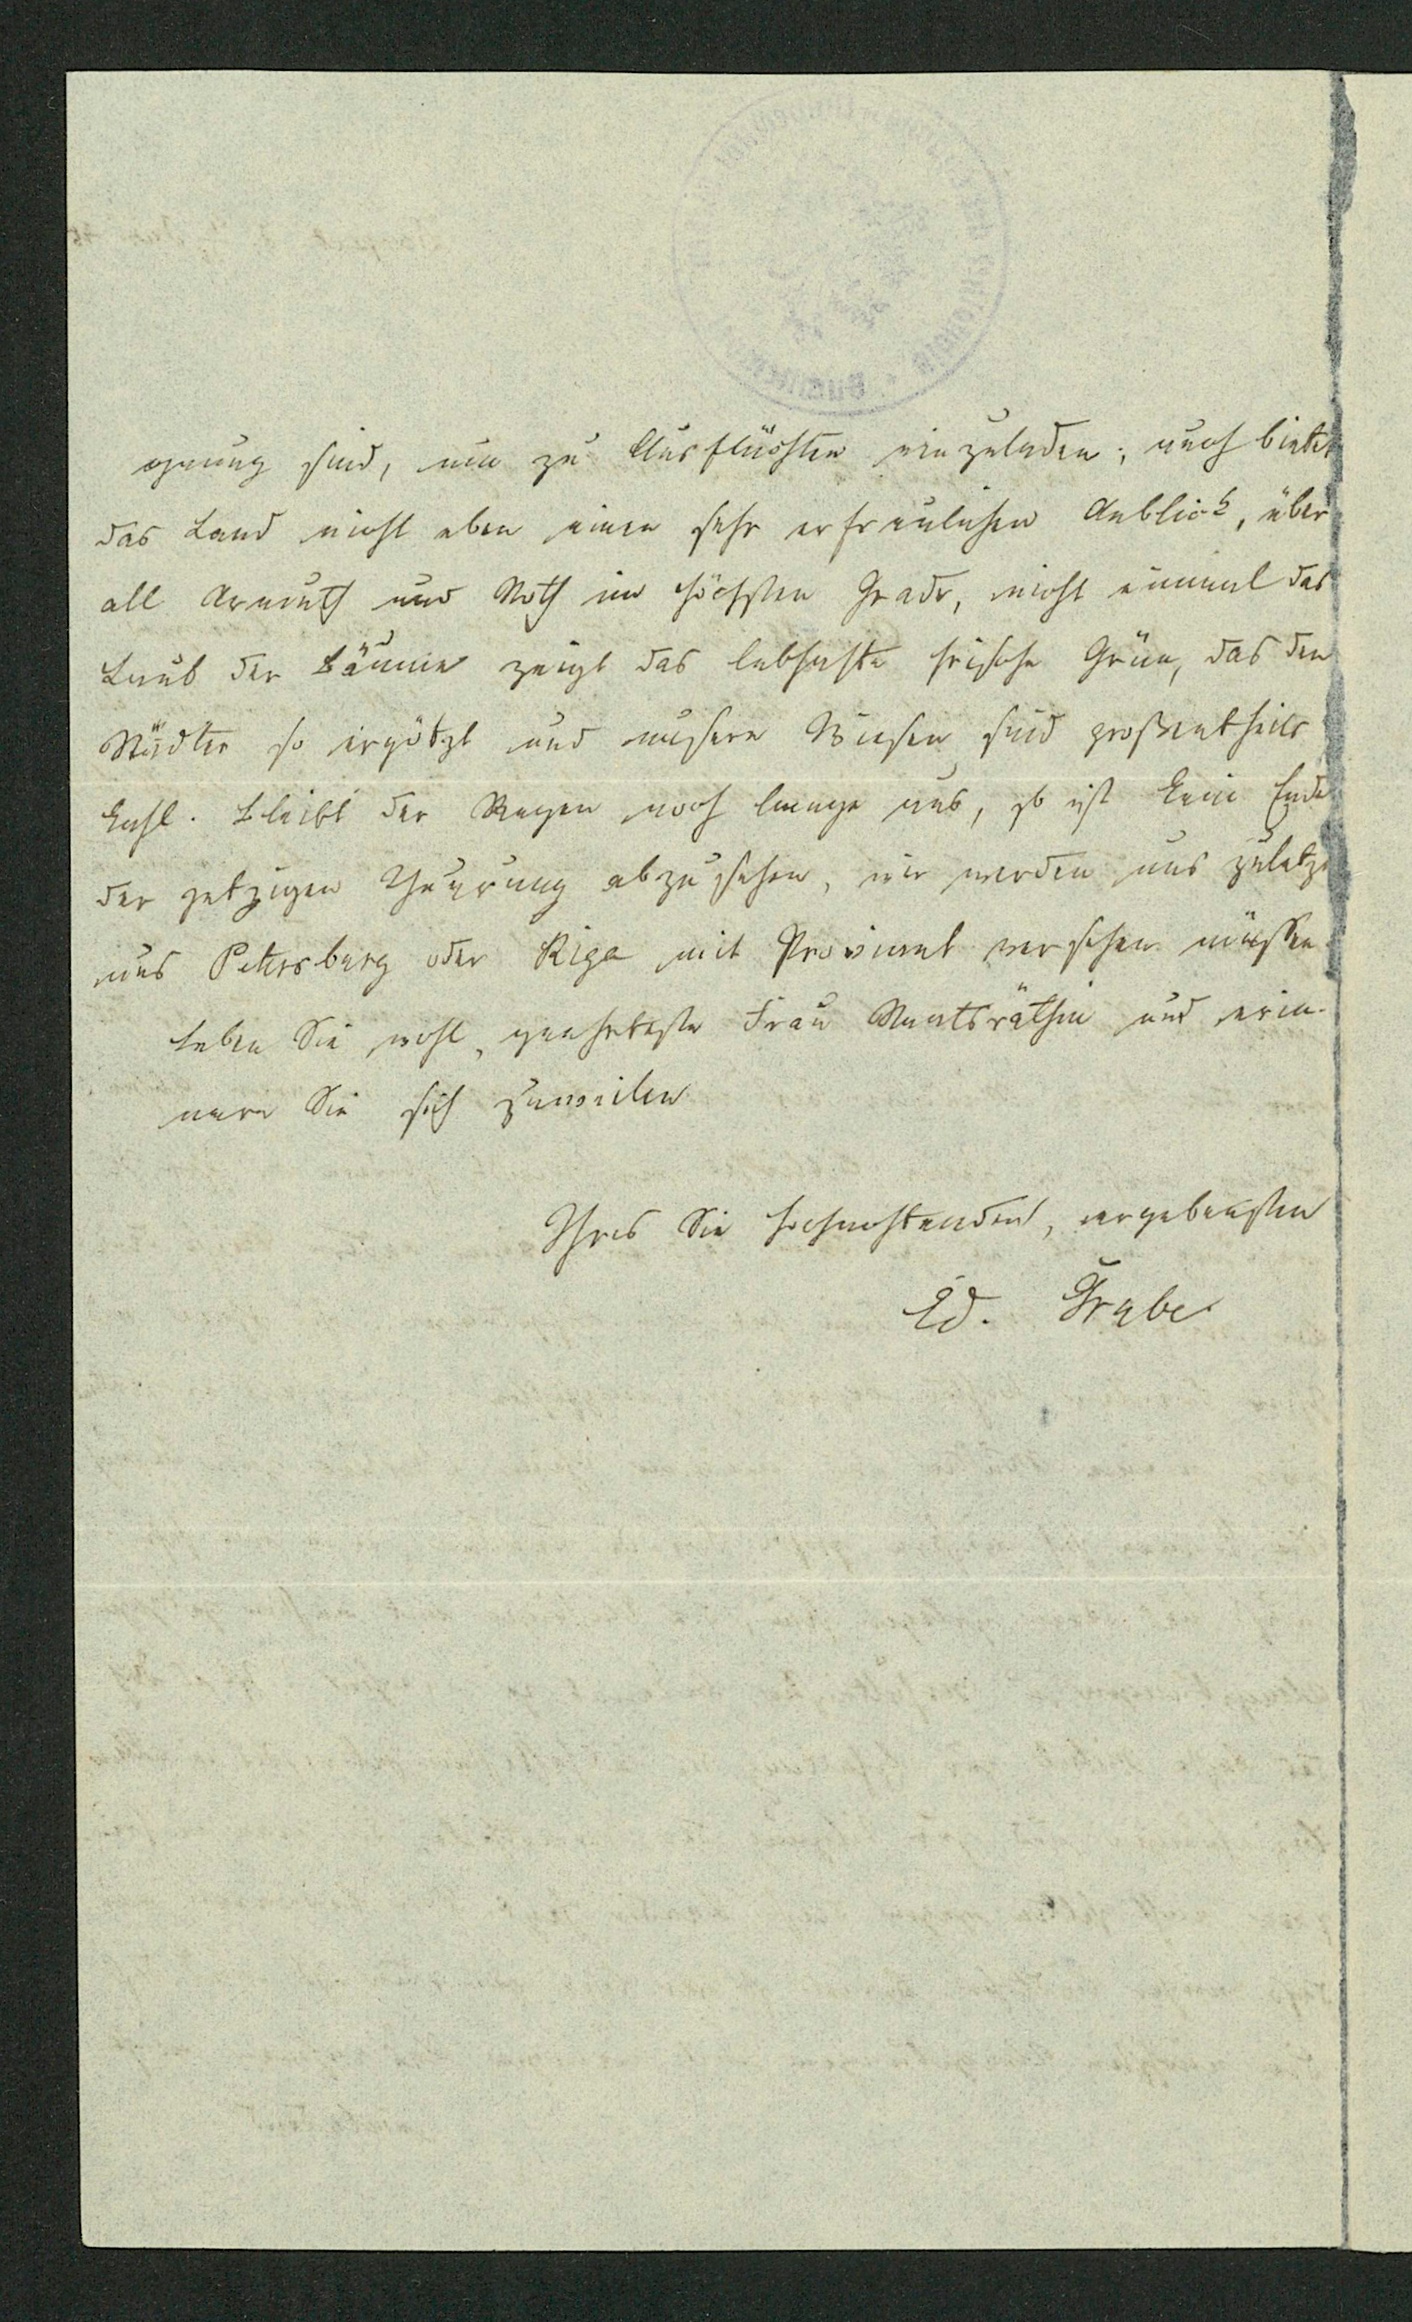 genung sind, um zu Ausflüchten einzuladen; auch bietet
das Land nicht eben einen sehr erfreulichen Anblick, über
all Armuth und Noth im höchsten Grade, nicht einmal das
Laub der Bäume zeigt das lebhafte frische Grün, das den
Städter so ergötzt und unsere Wiesen sind großentheils
kahl. Bleibt der Regen noch lange aus, so ist kein Ende
der jetzigen Theurung abzusehen, wir werden uns zuletzt
aus Petersburg oder Riga mit Proviant versehen müssen.
Leben Sie wohl, geehrteste Frau Staatsräthin und erin-
nern Sie sich zuweilen
Ihres Sie hochachtenden, ergebensten
Ed. Grube